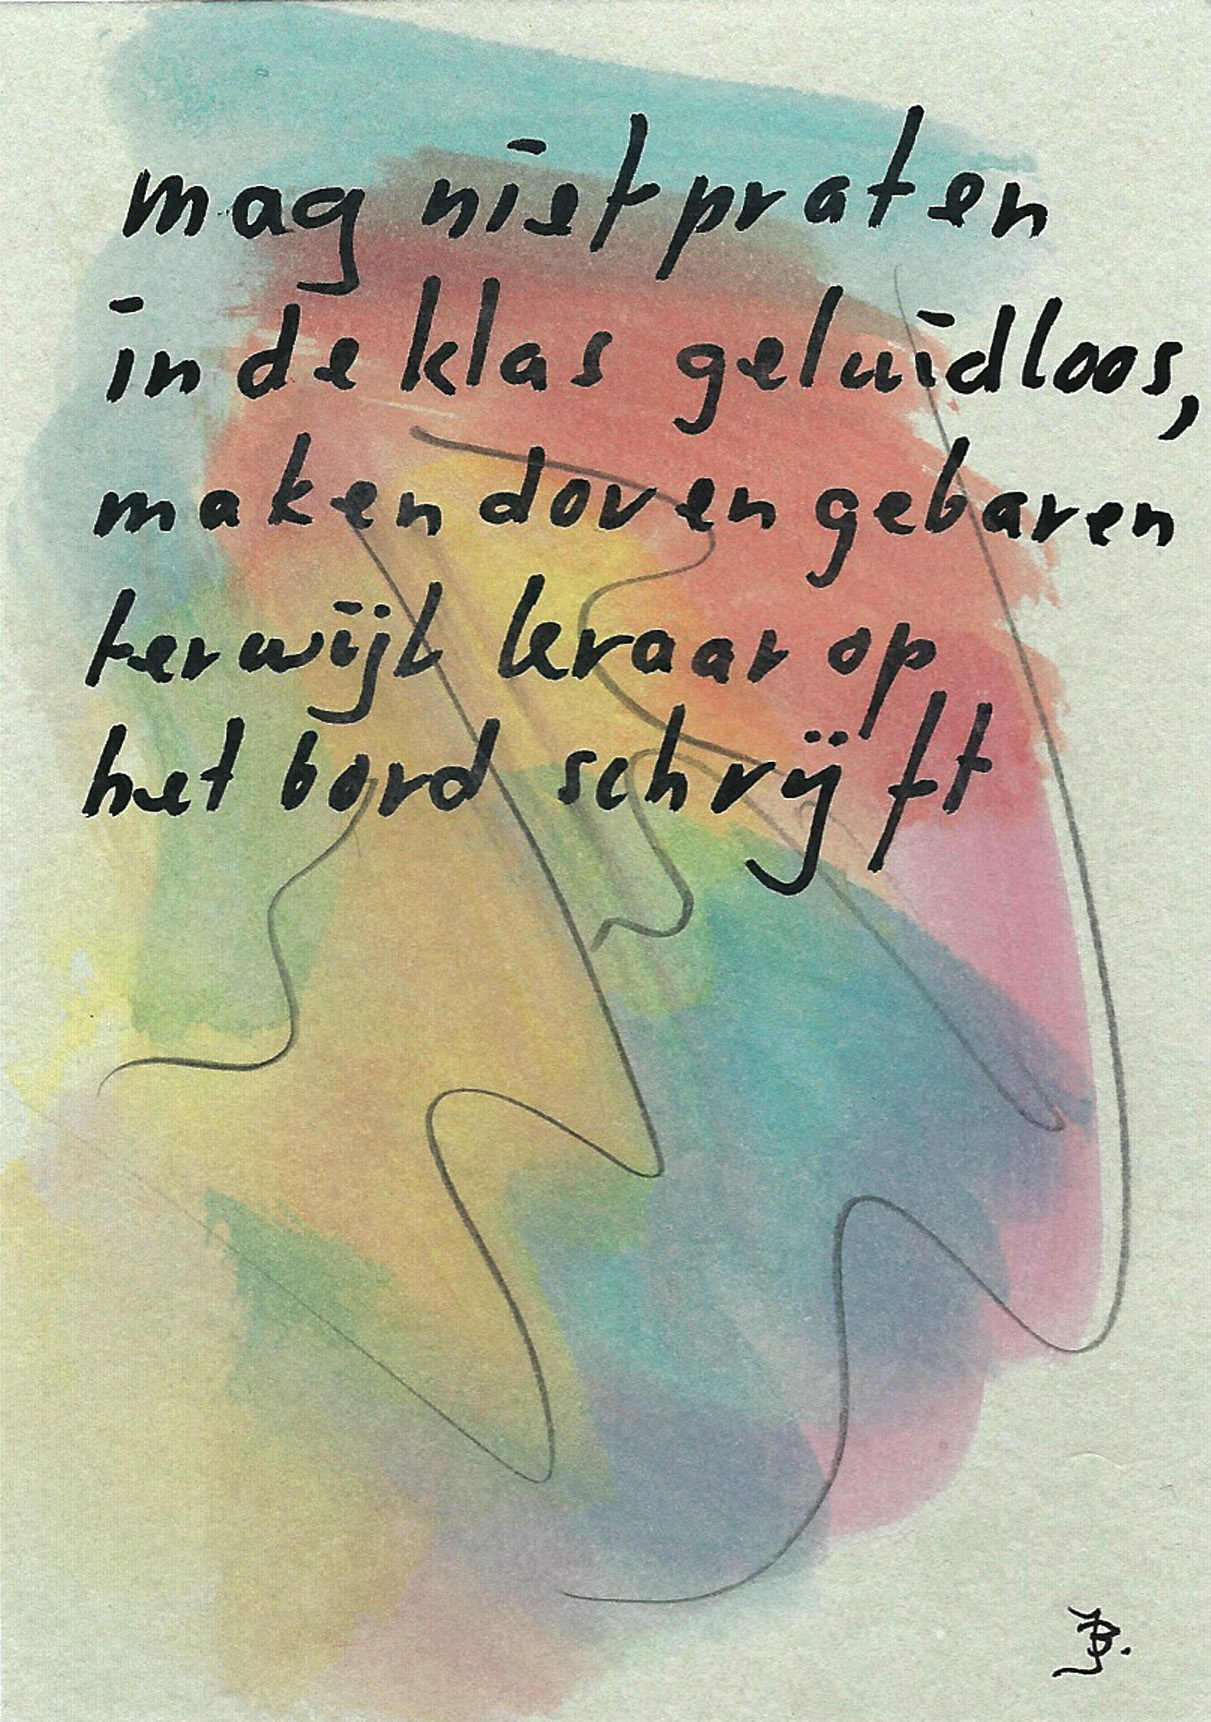 mag niet praten
in de klas geluidloos,
maken doven gebaren
terwijl leraar op
het bord schrijft